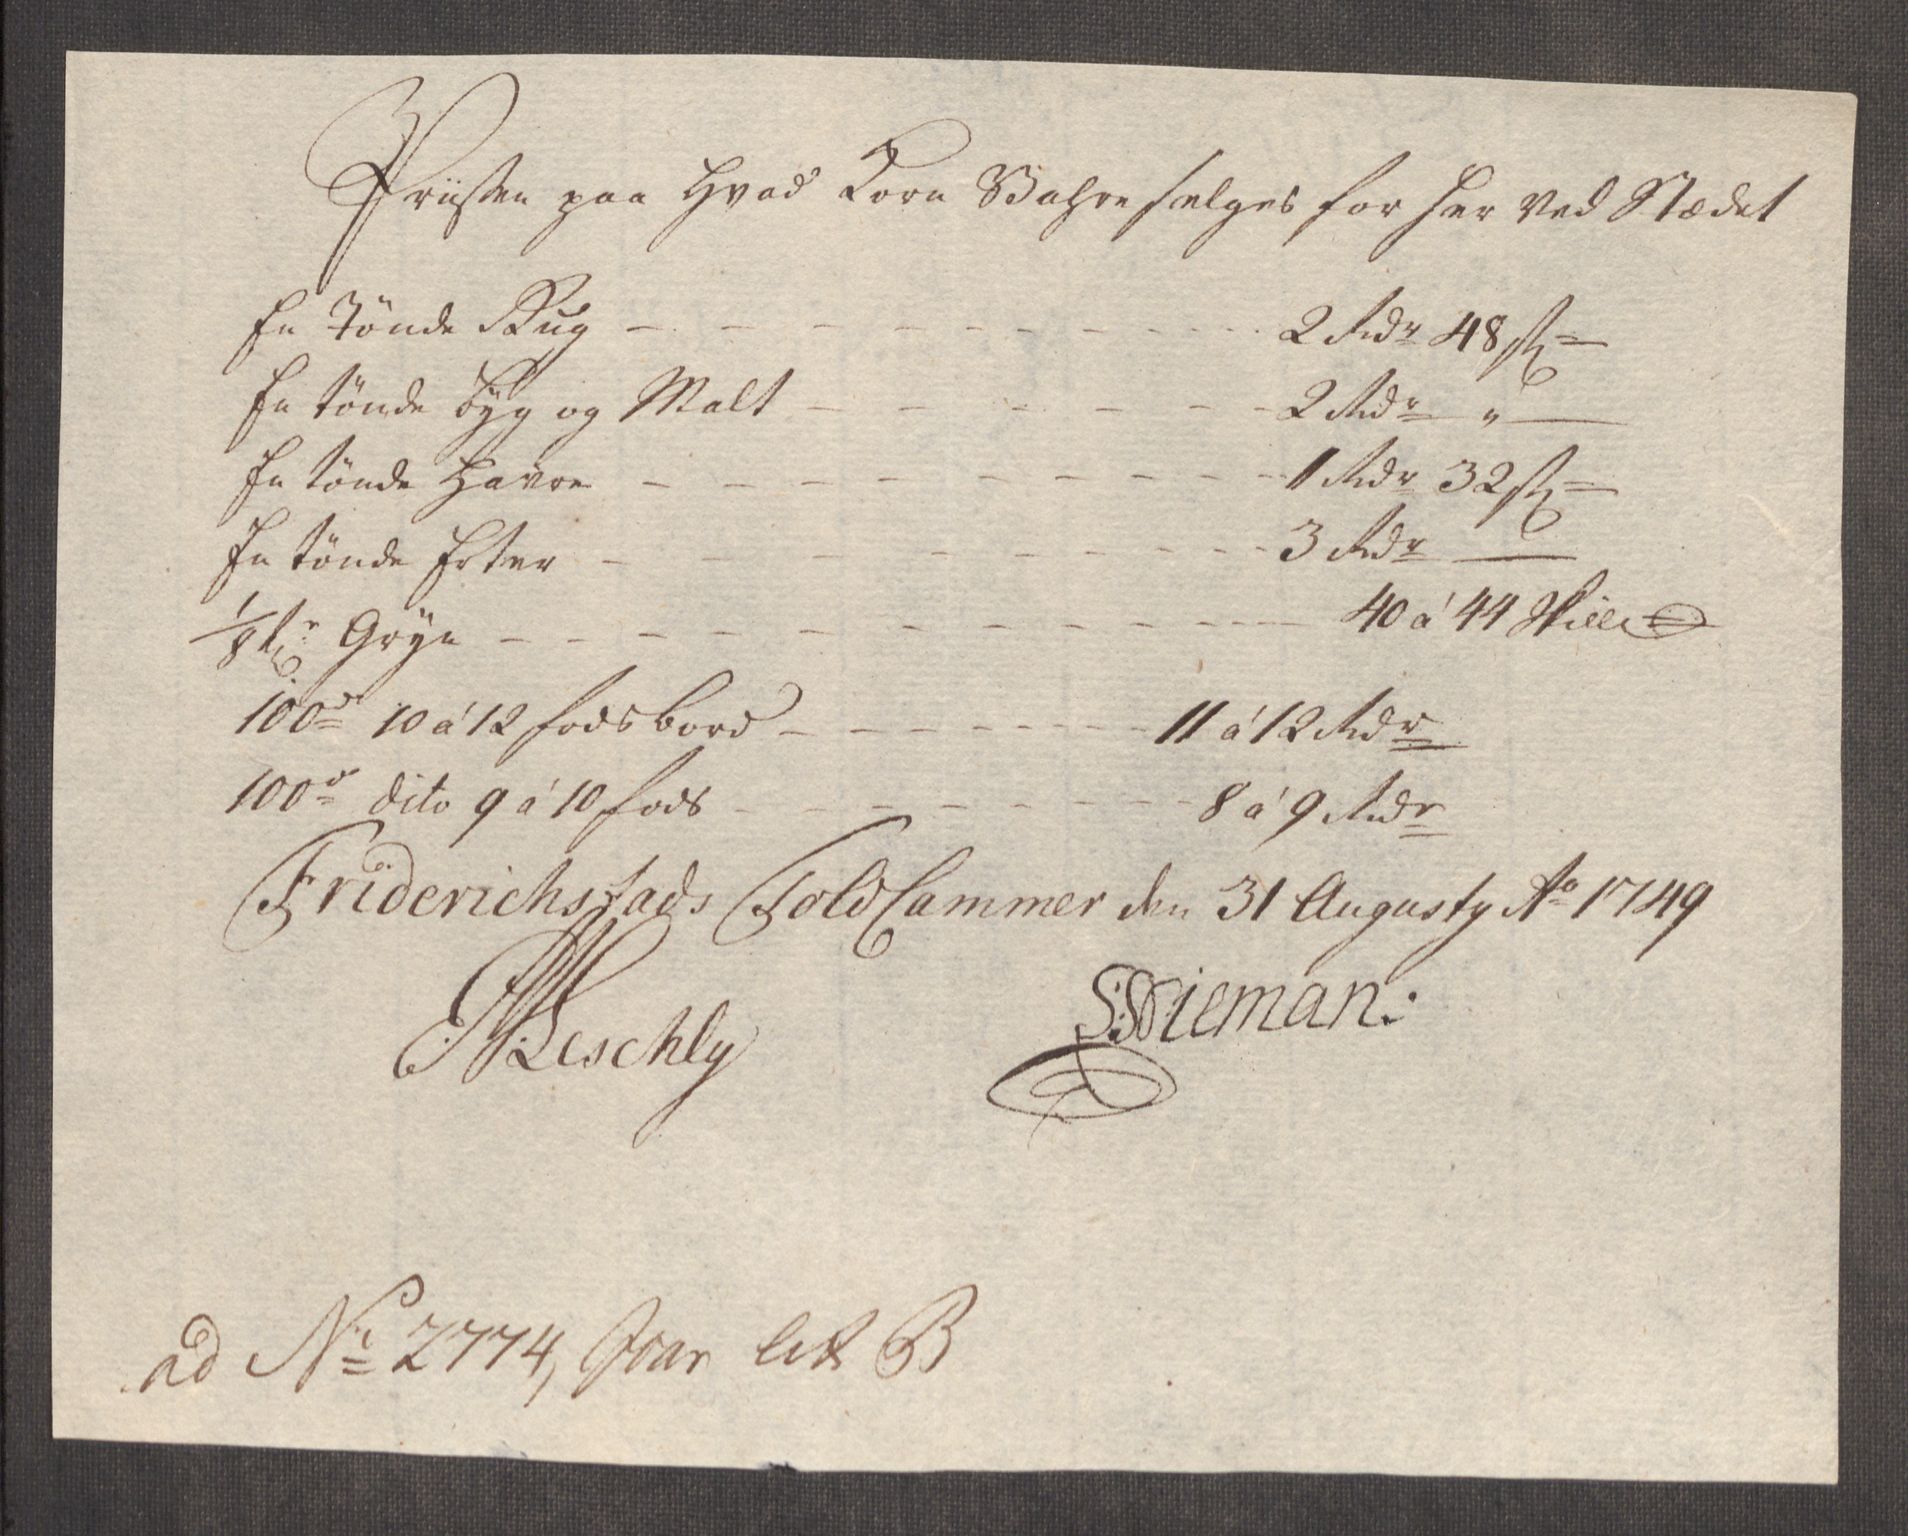 Priisen paa hvad Korn Vahre selges for her ved Stædet
En Tönde Rug - - - - - - - - 2 Rdr 48 s
En tönde byg og Malt - - - - - - 2 Rdr "
En tönde Havre - - - - - - - - 1 Rdr 32 s
En tönde Erter - - - - - - - - 3 Rdr
1/8 tr Gryn - - - - - - - - 40 á 44 Skill
100de 10 á 12 fods bord - - - - - - 11 á 12 Rdr
100de dito 9 á 10 fods - - - - - - 8 á 9 Rdr
Friderichstads Told Cammer den 31 Augusty Ao 1749
Leschly S: Wieman:
ad No 2774, Foar lit B